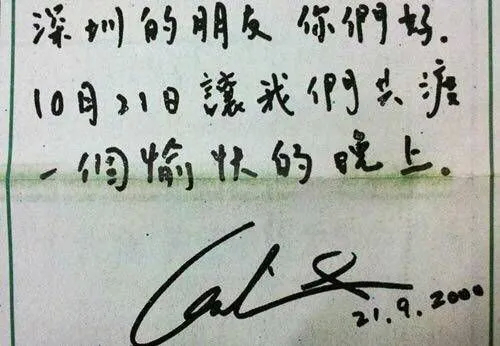 深圳的朋友 你們好.
10月21日讓我們共渡
一個愉快的晚上。
21.9.2000